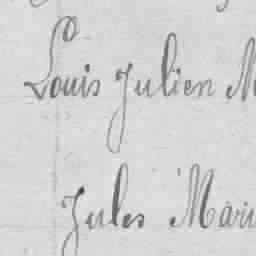 Louis Julien M
Jules Mari